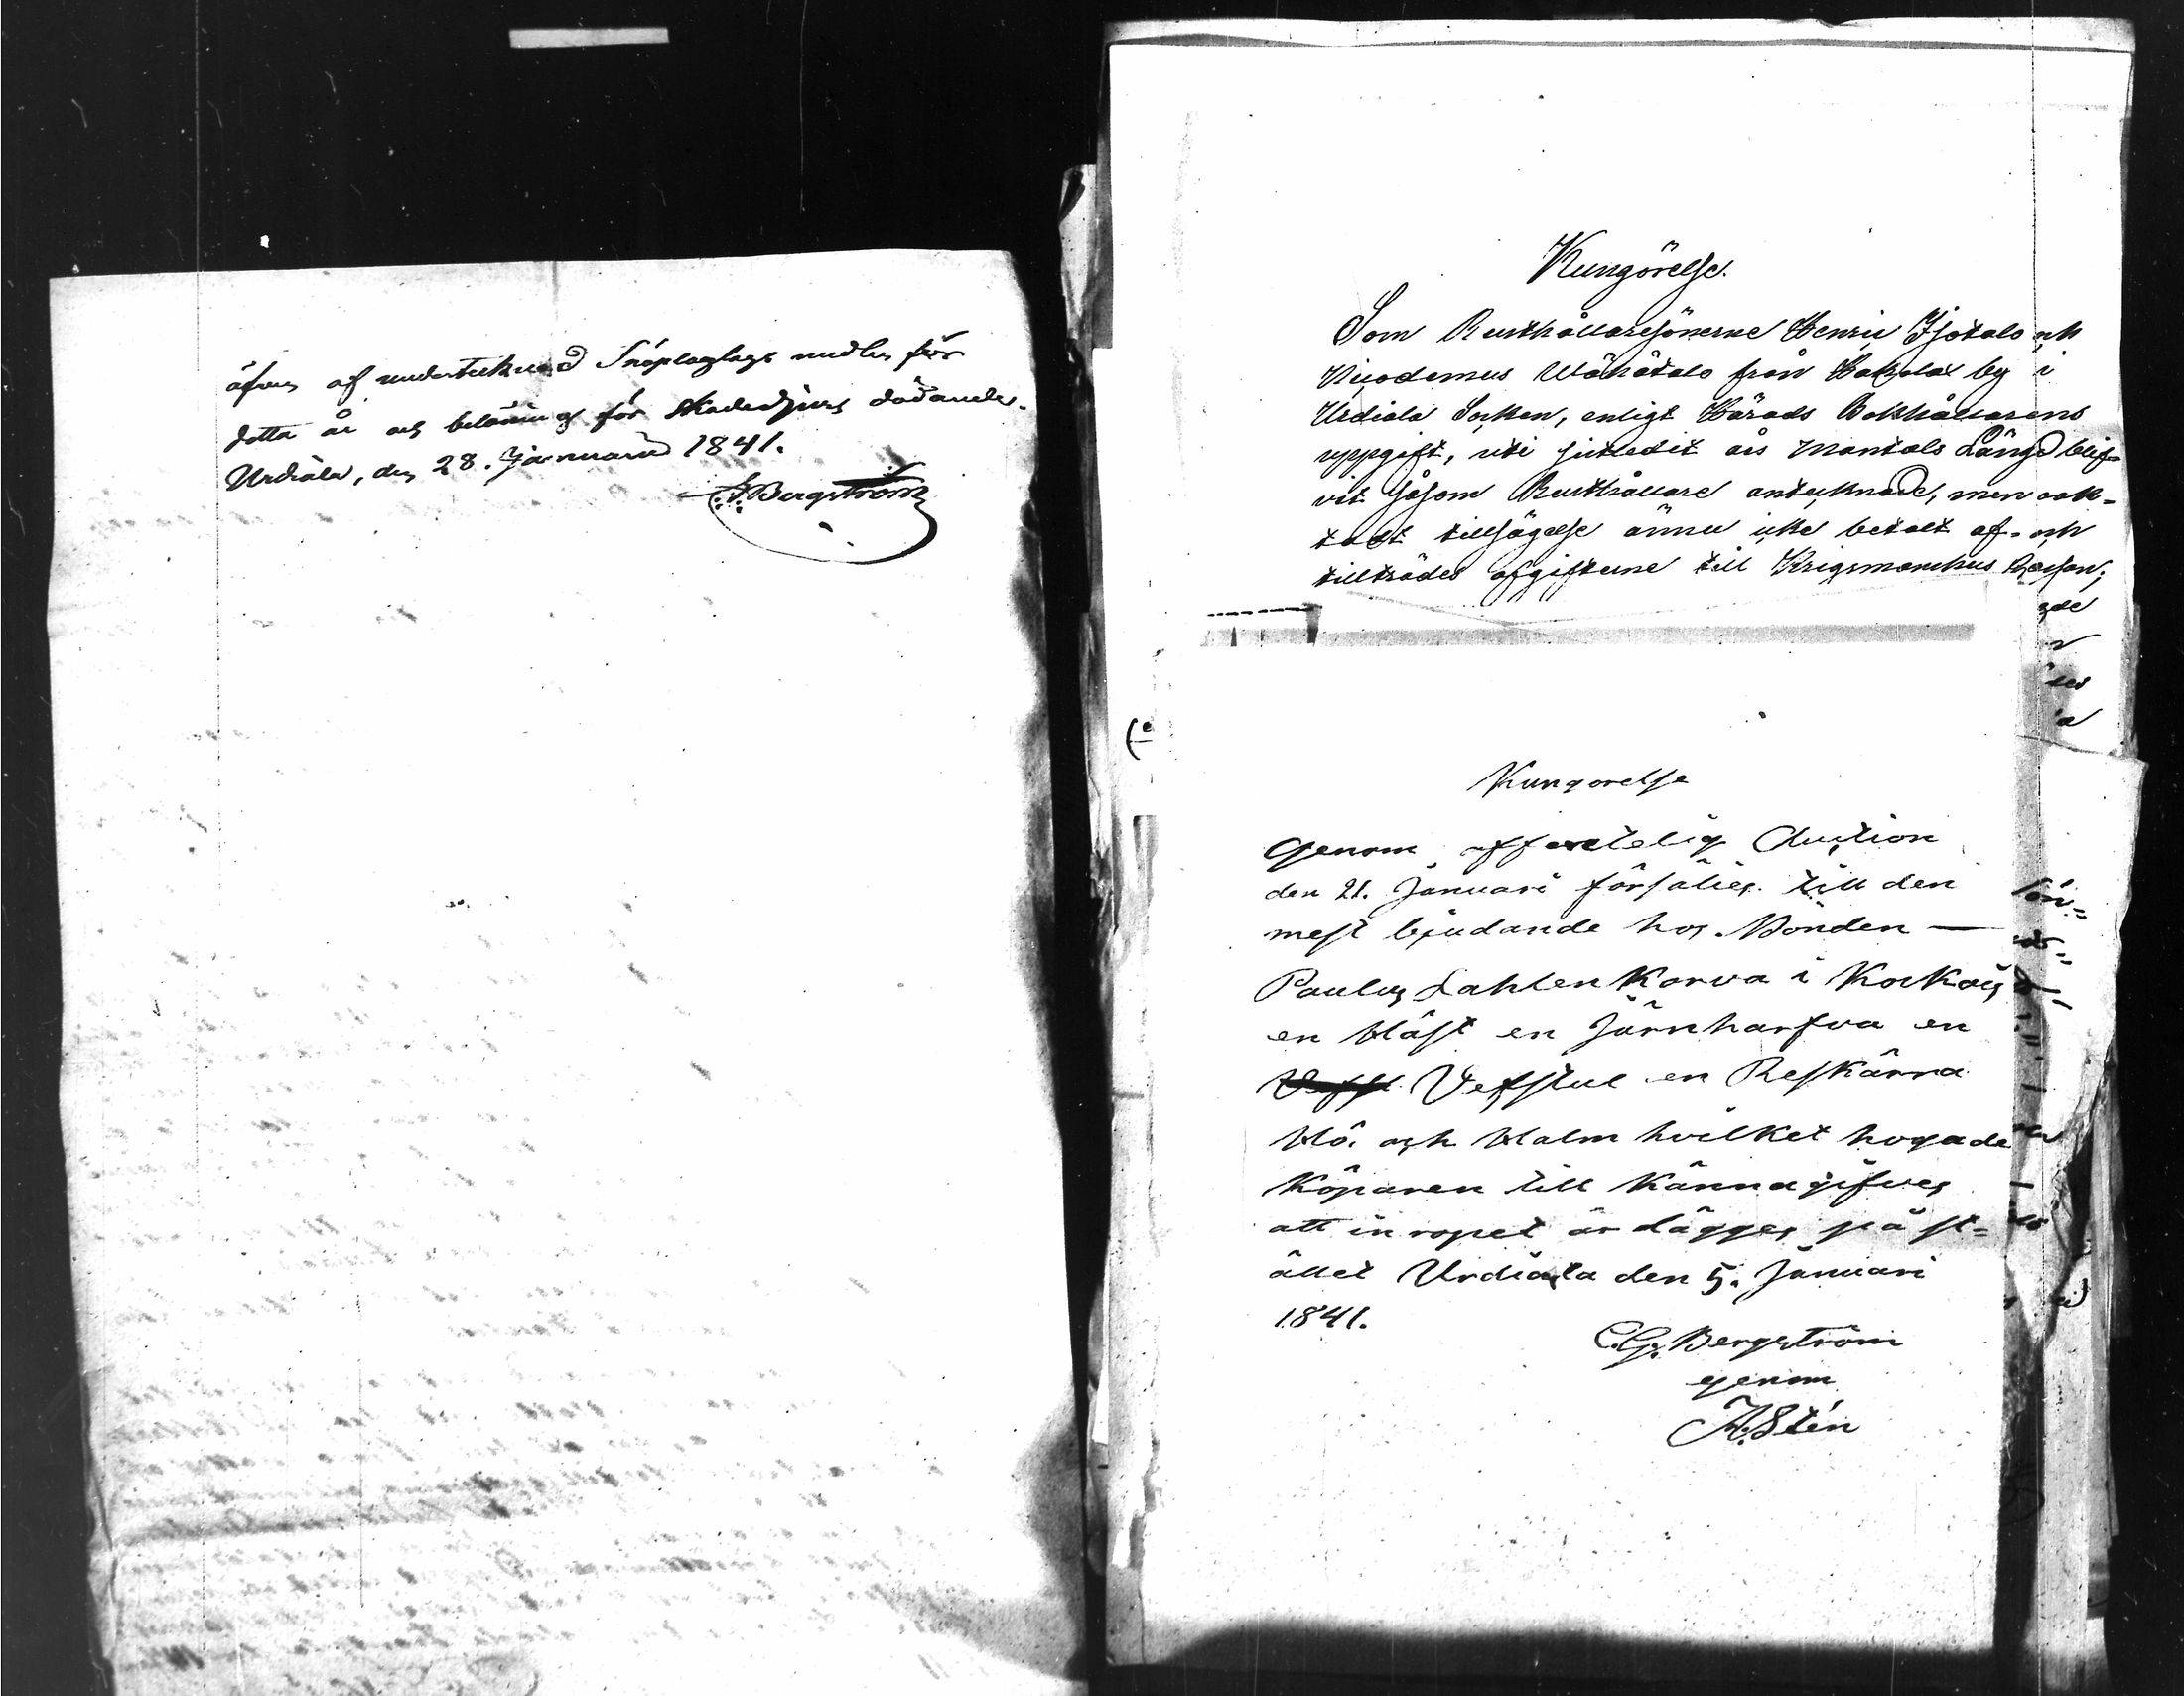 äfven af undertecknad Snöploglags medlen för
detta år och belöning för skadedjurs dödande.
Urdiala, den 28. Januarii 1841.
C.G. Bergström
Kungörelse.
Som Rusthållaresönerne Henric Isotalo och
Nicodemus Wähätalo från Hakolax by i
Urdiala Socken, enligt Härads Bokhållarens
uppgift, uti sistledit års Mantals Längd blif-
vit såsom Rusthållare antecknade, men oak-
tadt tillsägelse ännu icke betalt af- och
tillträdes afgifterne till Krigsmanshus Cassan;
Kungorelse
Genom offentelig Auction
den 21. Januari försälies till den
mest bjudande hos Bonden —
Paulus Lahlen Korva i Kockois
en Häst en Järnharfva en
Vefstul en Reskärra
Hö. och Halm hvilket hogade
Köparen till Känna gifves
att in ropet är lägges på st=
ället Urdiala den 5. Januari
1841.
C.G. Bergström
genom
K. Stén